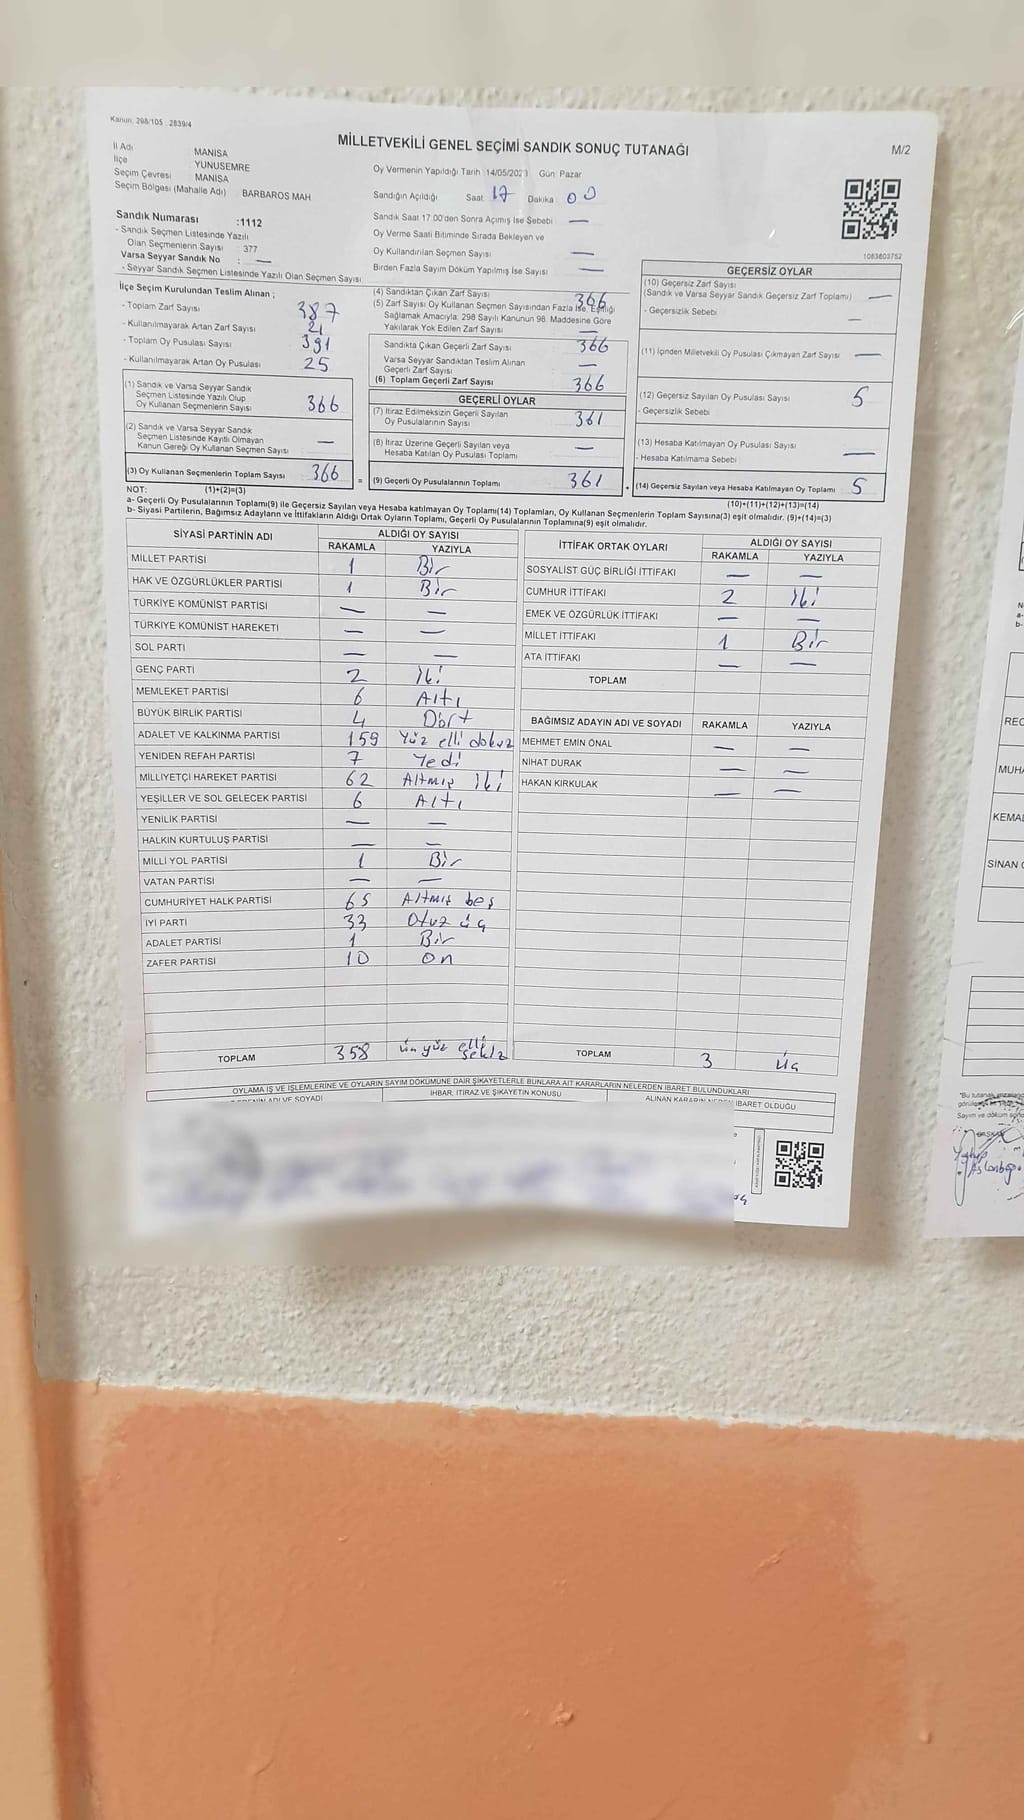 Kanun: 298/105 : 2839/4
MİLLETVEKİLİ GENEL SEÇİMİ SANDIK SONUÇ TUTANAĞI
M/2
İl Adı MANİSA
İlçe YUNUSEMRE
Seçim Çevresi MANİSA
Seçim Bölgesi (Mahalle Adı) BARBAROS MAH
Oy Vermenin Yapıldığı Tarih 14/05/2023 Gün: Pazar
Sandığın Açıldığı Saat 17 Dakika 00
Sandık Saat 17.00'den Sonra Açımış İse Sebebi —
Oy Verme Saati Bitiminde Sırada Bekleyen ve
Oy Kullandırılan Seçmen Sayısı —
Birden Fazla Sayım Döküm Yapılmış İse Sayısı —
1083803752
Sandık Numarası :1112
- Sandık Seçmen Listesinde Yazılı
Olan Seçmenlerin Sayısı : 377
Varsa Seyyar Sandık No : —
- Seyyar Sandık Seçmen Listesinde Yazılı Olan Seçmen Sayısı
İlçe Seçim Kurulundan Teslim Alınan ;
- Toplam Zarf Sayısı 387
- Kullanılmayarak Artan Zarf Sayısı 21
- Toplam Oy Pusulası Sayısı 391
- Kullanılmayarak Artan Oy Pusulası 25
(1) Sandık ve Varsa Seyyar Sandık
Seçmen Listesinde Yazılı Olup
Oy Kullanan Seçmenlerin Sayısı 366
(2) Sandık ve Varsa Seyyar Sandık
Seçmen Listesinde Kayıtlı Olmayan
Kanun Gereği Oy Kullanan Seçmen Sayısı —
(3) Oy Kullanan Seçmenlerin Toplam Sayısı 366
(1)+(2)=(3)
(4) Sandıktan Çıkan Zarf Sayısı 366
(5) Zarf Sayısı Oy Kullanan Seçmen Sayısından Fazla İse, Eşitliği
Sağlamak Amacıyla; 298 Sayılı Kanunun 98. Maddesine Göre
Yakılarak Yok Edilen Zarf Sayısı —
Sandıkta Çıkan Geçerli Zarf Sayısı 366
Varsa Seyyar Sandıktan Teslim Alınan
Geçerli Zarf Sayısı —
(6) Toplam Geçerli Zarf Sayısı 366
GEÇERLİ OYLAR
(7) İtiraz Edilmeksizin Geçerli Sayılan
Oy Pusulalarının Sayısı 361
(8) İtiraz Üzerine Geçerli Sayılan veya
Hesaba Katılan Oy Pusulası Toplamı —
= (9) Geçerli Oy Pusulalarının Toplamı 361
GEÇERSİZ OYLAR
(10) Geçersiz Zarf Sayısı
(Sandık ve Varsa Seyyar Sandık Geçersiz Zarf Toplamı) —
- Geçersizlik Sebebi —
(11) İçinden Milletvekili Oy Pusulası Çıkmayan Zarf Sayısı —
(12) Geçersiz Sayılan Oy Pusulası Sayısı 5
- Geçersizlik Sebebi
(13) Hesaba Katılmayan Oy Pusulası Sayısı
- Hesaba Katılmama Sebebi —
+ (14) Geçersiz Sayılan veya Hesaba Katılmayan Oy Toplamı 5
(10)+(11)+(12)+(13)=(14)
NOT:
a- Geçerli Oy Pusulalarının Toplamı(9) ile Geçersiz Sayılan veya Hesaba katılmayan Oy Toplamı(14) Toplamları, Oy Kullanan Seçmenlerin Toplam Sayısına(3) eşit olmalıdır. (9)+(14)=(3)
b- Siyasi Partilerin, Bağımsız Adayların ve İttifakların Aldığı Ortak Oyların Toplamı, Geçerli Oy Pusulalarının Toplamına(9) eşit olmalıdır.
SİYASİ PARTİNİN ADI ALDIĞI OY SAYISI
RAKAMLA YAZIYLA
MİLLET PARTİSİ 1 Bir
HAK VE ÖZGÜRLÜKLER PARTİSİ 1 Bir
TÜRKİYE KOMÜNİST PARTİSİ — —
TÜRKİYE KOMÜNİST HAREKETİ — —
SOL PARTİ — —
GENÇ PARTİ 2 İki
MEMLEKET PARTİSİ 6 Altı
BÜYÜK BİRLİK PARTİSİ 4 Dört
ADALET VE KALKINMA PARTİSİ 159 Yüz elli dokuz
YENİDEN REFAH PARTİSİ 7 Yedi
MİLLİYETÇİ HAREKET PARTİSİ 62 Altmış iki
YEŞİLLER VE SOL GELECEK PARTİSİ 6 Altı
YENİLİK PARTİSİ — —
HALKIN KURTULUŞ PARTİSİ — —
MİLLİ YOL PARTİSİ 1 Bir
VATAN PARTİSİ — —
CUMHURİYET HALK PARTİSİ 65 Altmış beş
İYİ PARTİ 33 Otuz üç
ADALET PARTİSİ 1 Bir
ZAFER PARTİSİ 10 On
TOPLAM 358 Üçyüz elli sekiz
İTTİFAK ORTAK OYLARI ALDIĞI OY SAYISI
RAKAMLA YAZIYLA
SOSYALİST GÜÇ BİRLİĞİ İTTİFAKI — —
CUMHUR İTTİFAKI 2 İki
EMEK VE ÖZGÜRLÜK İTTİFAKI — —
MİLLET İTTİFAKI 1 Bir
ATA İTTİFAKI — —
TOPLAM
BAĞIMSIZ ADAYIN ADI VE SOYADI RAKAMLA YAZIYLA
MEHMET EMİN ÖNAL — —
NİHAT DURAK — —
HAKAN KIRKULAK — —
TOPLAM 3 Üç
OYLAMA İŞ VE İŞLEMLERİNE VE OYLARIN SAYIM DÖKÜMÜNE DAİR ŞİKAYETLERLE BUNLARA AİT KARARLARIN NELERDEN İBARET BULUNDUKLARI
ADI VE SOYADI İHBAR, İTİRAZ VE ŞİKAYETİN KONUSU ALINAN KARARIN NEDEN İBARET OLDUĞU
REC
MUHA
KEMAL
SİNAN